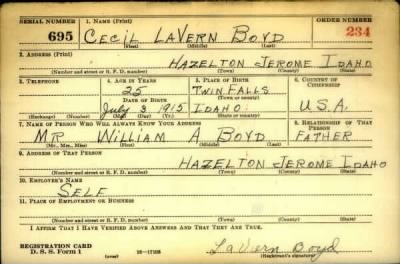 SERIAL NUMBER 1. NAME (Print) ORDER NUMBER
695 CECIL LAVERN BOYD 234
(First) (Middle) (Last)
2. ADDRESS (Print)
HAZELTON JEROME IDAHO
(Number and street or R. F. D. number) (Town) (County) (State)
3. TELEPHONE 4. AGE IN YEARS 5. PLACE OF BIRTH 6. COUNTRY OF CITIZENSHIP
25 TWIN FALLS
DATE OF BIRTH (Town or county)
July 3 1915 IDAHO U.S.A.
(Exchange) (Number) (Mo.) (Day) (Yr.) (State or country)
7. NAME OF PERSON WHO WILL ALWAYS KNOW YOUR ADDRESS 8. RELATIONSHIP OF THAT PERSON
MR WILLIAM A BOYD FATHER
(Mr., Mrs., Miss) (First) (Middle) (Last)
9. ADDRESS OF THAT PERSON
HAZELTON JEROME IDAHO
(Number and street or R. F. D. number) (Town) (County) (State)
10. EMPLOYER'S NAME
SELF
11. PLACE OF EMPLOYMENT OR BUSINESS
(Number and street or R. F. D. number) (Town) (County) (State)
I AFFIRM THAT I HAVE VERIFIED ABOVE ANSWERS AND THAT THEY ARE TRUE.
REGISTRATION CARD LaVern Boyd
D. S. S. Form 1 (over) (Registrant's signature)